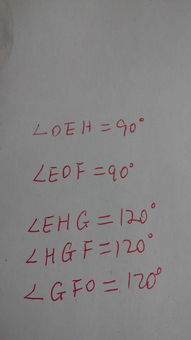 ∠OEH = 90°
∠EOF = 90°
∠EHG = 120°
∠HGF = 120°
∠GFO = 120°